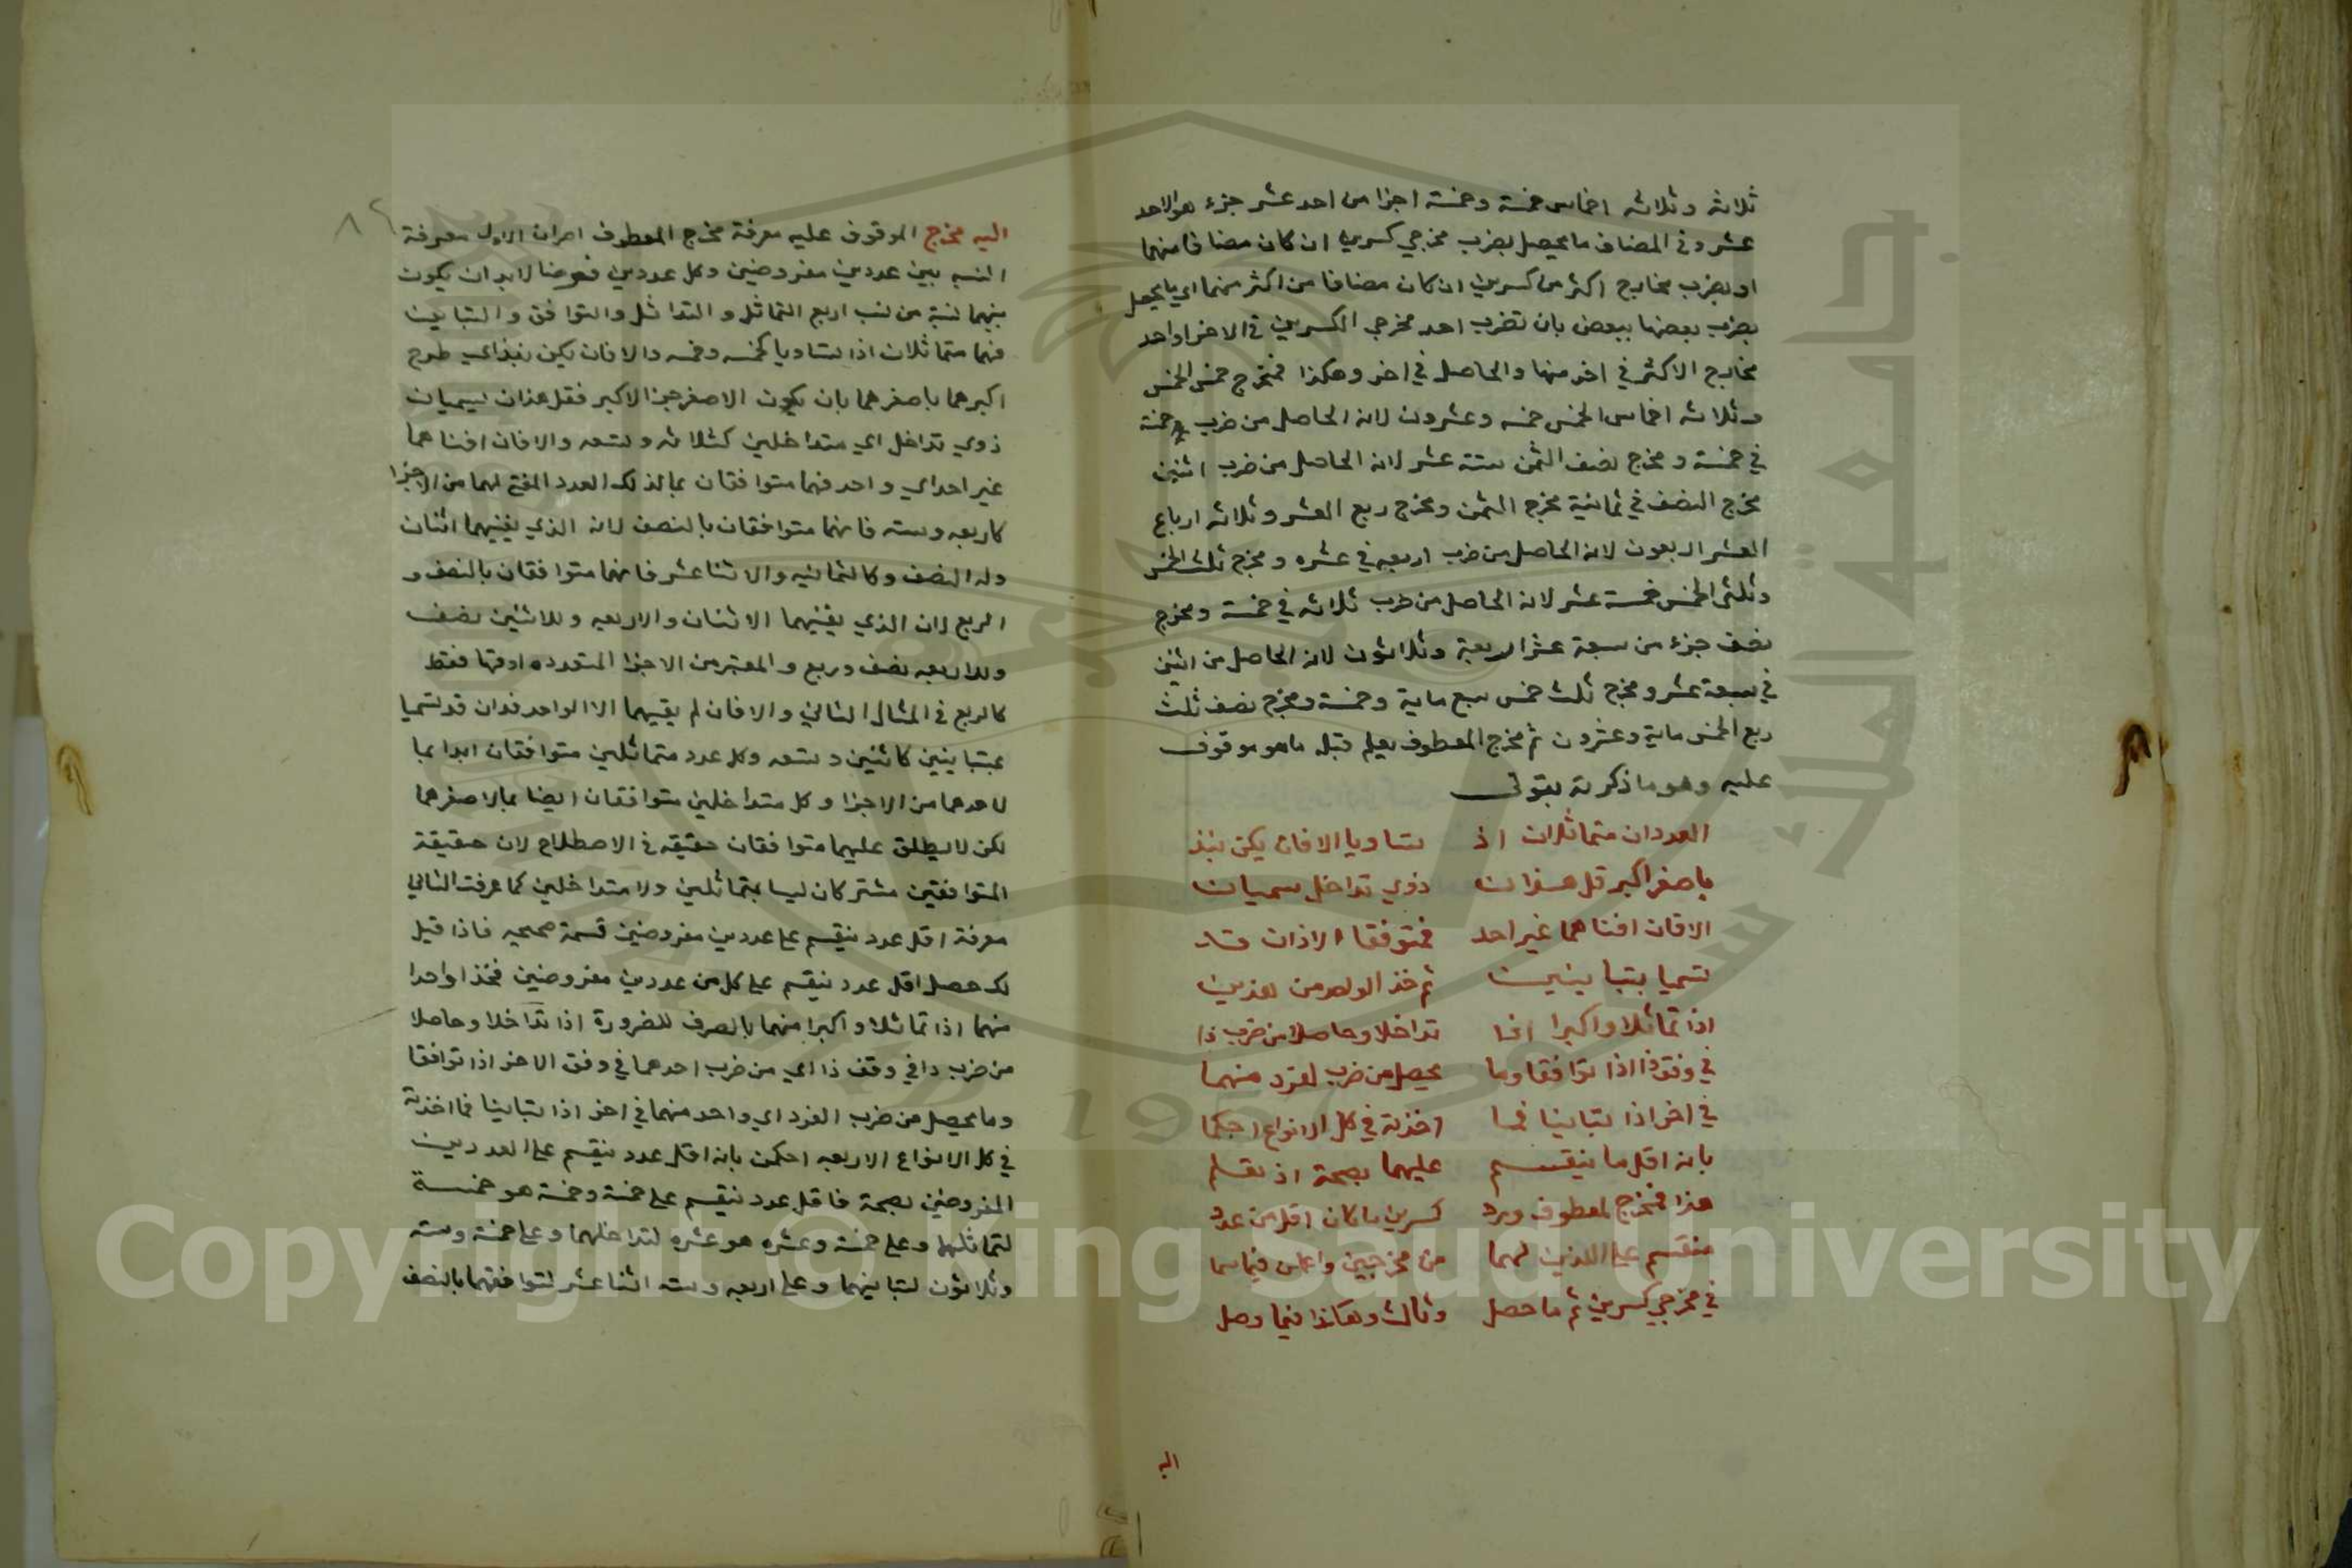 ثلاثة وثلاثه اخماس خمسة وخمسة اجزا من احد عشر جزء هو الاحد
عشر وفي المضاف ما يحصل بضرب مخرجي كسرين ان كان مضافا منهما
او بضرب مخارج اكثر من كسرين ان كان مضافا من اكثر منهما اي ما يحصل
بضرب بعضها ببعض بان تضرب احد مخرجي الكسرين في الاخر او احد
مخارج الاكثر في اخر منها والحاصل في اخر وهكذا فمخرج خمس الخمس
وثلاثه اخماس الخمس خمسه وعشرون لانه الحاصل من ضرب خمسة
في خمسة ومخرج نصف الثمن ستة عشر لانه الحاصل من ضرب اثنين
مخرج النصف في ثمانية مخرج الثمن ومخرج ربع العشر وثلاثه ارباع
العشر اربعون لانه الحاصل من ضرب اربعه في عشره ومخرج ثلث الخمس
وثلثي الخمس خمسة عشر لانه الحاصل من ضرب ثلاثه في خمسة ومخرج
نصف جزء من سبعة عشر اربعة وثلاثون لانه الحاصل من اثنين
في سبعة عشر ومخرج ثلث خمس سبع ماية وخمسة ومخرج نصف ثلث
ربع الخمس ماية وعشرون ثم مخرج المعطوف يعلم قبله ما هو موقوف
عليه وهو ما ذكرته بقولي
العددان متماثلان اذ تساويا الا فان يكن نبذ
باصغر اكبر قل هذان ذوي تداخل يسميان
الا فان افناهما غير احد فمتوفقا الاذان قد
تسميا بتباينين ثم خذ الواحد من هذين
اذا تماثلا واكبرا اذا تداخلا وحاصلا من ضرب ذا
في وفق ذا اذا توافقا وما يحصل من ضرب لفرد منهما
في اخر اذا تباينا فما اخذته في كل الانواع احكما
بانه اقل ما ينقسم عليهما بصحة اذ تقسم
هذا فمخرج لمعطوف ورد كسرين ما كان اقل من عدد
منقسم على اللذين لهما من مخرجين واعلمن فيما سما
في مخرجي كسرين ثم ما حصل وثالث وهكذا فيما وصل
اليه
٨٢
اليه مخرج الموقوف عليه معرفة مخرج المعطوف امران الاول معرفة
النسبه بين عددين مفروضين وكل عددين فرضا لابد ان يكون
بينهما نسبة من نسب اربع التماثل والتداخل والتوافق والتباين
فهما متماثلان اذا تساويا كخمسه وخمسه والا فان يكن نبذ اي طرح
اكبرهما باصغرهما بان يكون الاصغر جزء الاكبر فقل هذان يسميان
ذوي تداخل اي متداخلين كثلاثه وتسعه والا فان افناهما
غير احد اي واحد فهما متوافقان بما لذلك العدد المفني لهما من الاجزا
كاربعه وسته فانهما متوافقان بالنصف لانه الذي يفنيهما اثنان
وله النصف وكالثمانيه والاثنا عشر فانهما متوافقان بالنصف و
الربع لان الذي يفنيهما الاثنان والاربعه وللاثنين نصف
وللاربعه نصف وربع والمعتبر من الاجزا المتعدده ادقها فقط
كالربع في المثال الثاني والا فان لم يفنيهما الا الواحد فذان قد تسميا
بمتباينين كاثنين وتسعه وكل عدد متماثلين متوافقان ابدا بما
لاحدهما من الاجزا وكل متداخلين متوافقان ايضا بما لاصغرهما
لكن لا يطلق عليهما متوافقان حقيقه في الاصطلاح لان حقيقة
المتوافقين مشتركان ليسا بتماثلين ولا متداخلين كما عرفت الثاني
معرفة اقل عدد ينقسم على عددين مفروضين قسمة صحيحه فاذا قيل
لك حصل اقل عدد ينقسم على كل من عددين مفروضين فخذ واحدا
منهما اذا تماثلا واكبرا منهما بالصرف للضرورة اذا تداخلا وحاصلا
من ضرب ذا في وفق ذا اي من ضرب احدهما في وفق الاخر اذا توافقا
وما يحصل من ضرب الفرد اي واحد منهما في اخر اذا تباينا فما اخذته
في كل الانواع الاربعه احكمن بانه اقل عدد ينقسم على العددين
المفروضين بصحة فاقل عدد ينقسم على خمسة وخمسة هو خمسة
لتماثلهما وعلى خمسة وعشره هو عشره لتداخلهما وعلى خمسة وسته
وثلاثون لتباينهما وعلى اربعه وسته اثنا عشر لتوافقهما بالنصف
Copyright © King Saud University